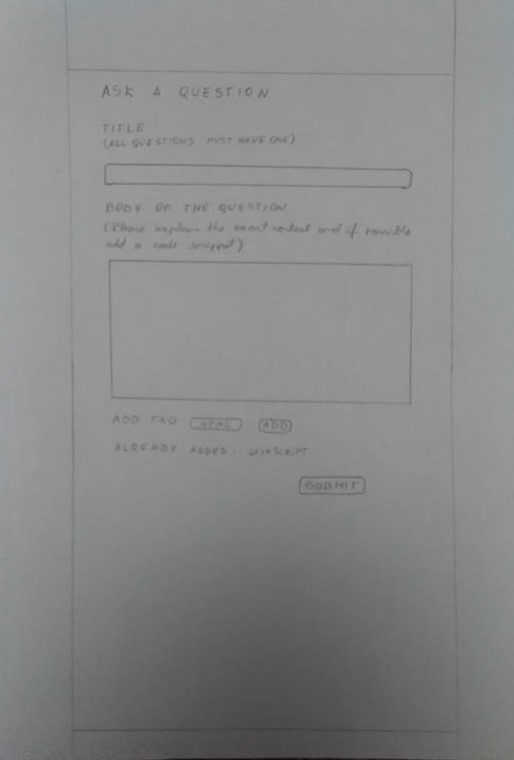 ASK A QUESTION
TITLE
(ALL QUESTIONS MUST HAVE ONE)
BODY OF THE QUESTION
(Please explain the exact context and if possible
add a code snippet)
ADD TAG HTML ADD
ALREADY ADDED: JAVASCRIPT
SUBMIT